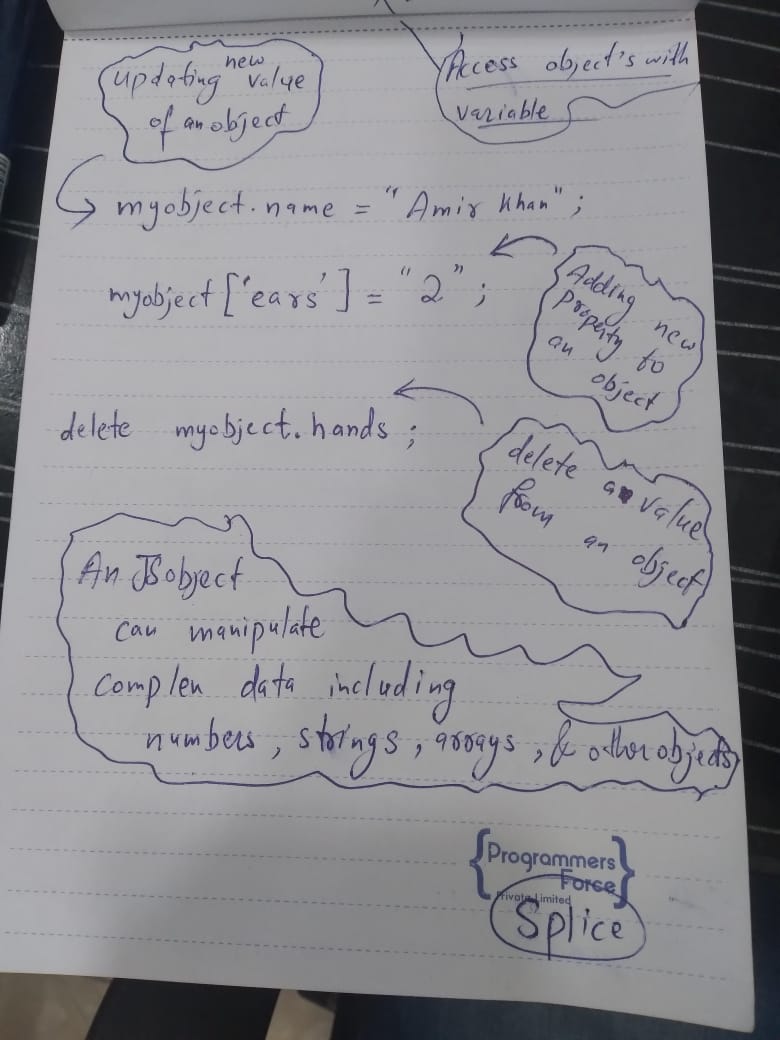 updating new value
of an object
Access object's with
variable
myobject.name = "Amir Khan";
myobject['ears'] = "2";
Adding new
property to
an object
delete myobject.hands;
delete a value
from an object
An JSobject
can manipulate
complex data including
numbers, strings, arrays, & other objects
{Programmers
Force}
Private Limited
Splice